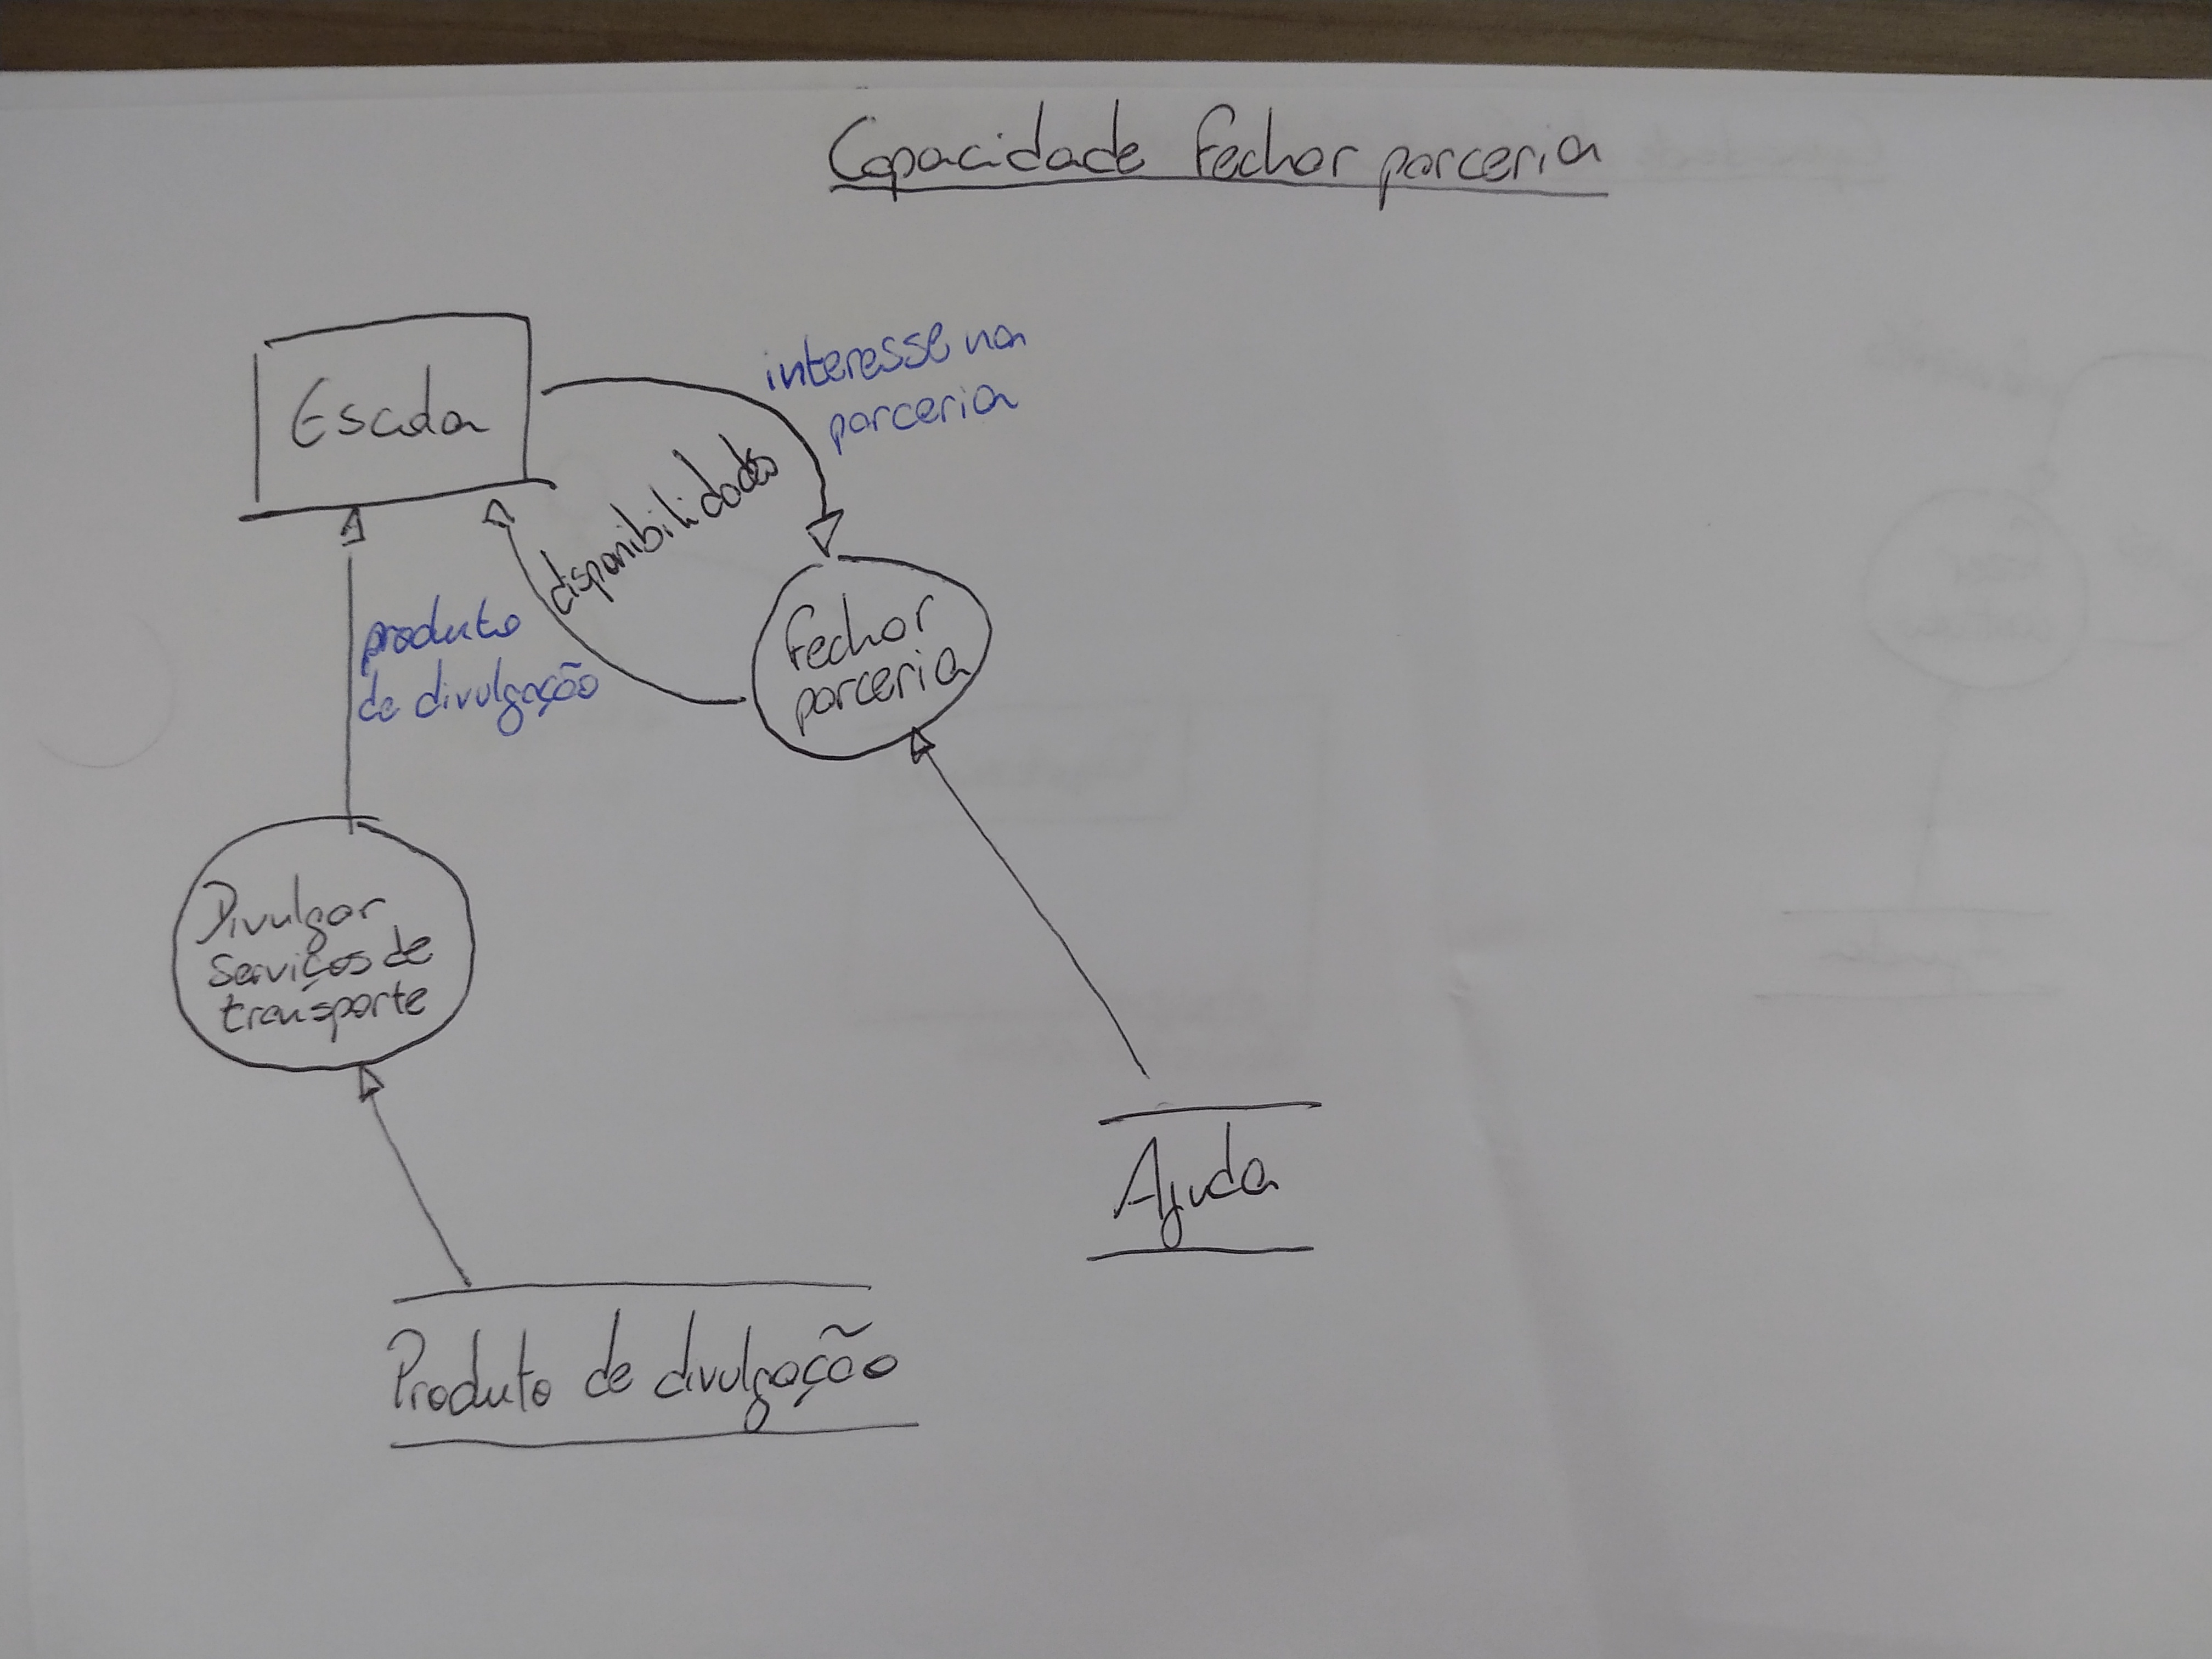 Capacidade Fechar parceria
Escola
interesse na
parceria
disponibilidades
produto
de divulgação
Fechar
parceria
Divulgar
serviços de
transporte
Ajuda
Produto de divulgação